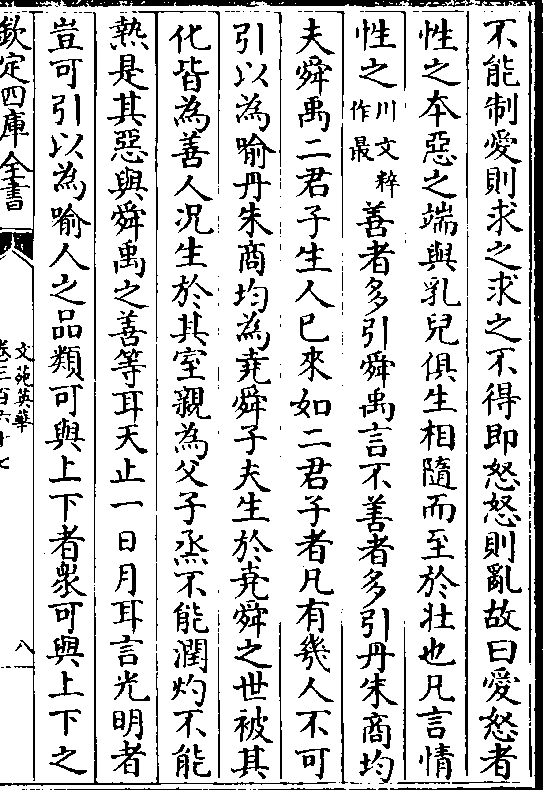 不能制愛則求之求之不得即怒怒則亂故曰愛怒者
性之本惡之端與乳兒俱生相隨而至於壯也凡言情
性之川文粹作最善者多引舜禹言不善者多引丹朱商均
夫舜禹二君子生人已來如二君子者凡有幾人不可
引以為喻丹朱商均為堯舜子夫生於堯舜之世被其
化皆為善人況生於其室親為父子烝不能潤灼不能
熱是其惡與舜禹之善等耳天止一日月耳言光明者
豈可引以為喻人之品類可與上下者衆可與上下之
欽定四庫全書
文苑英華
卷三百六十七
八